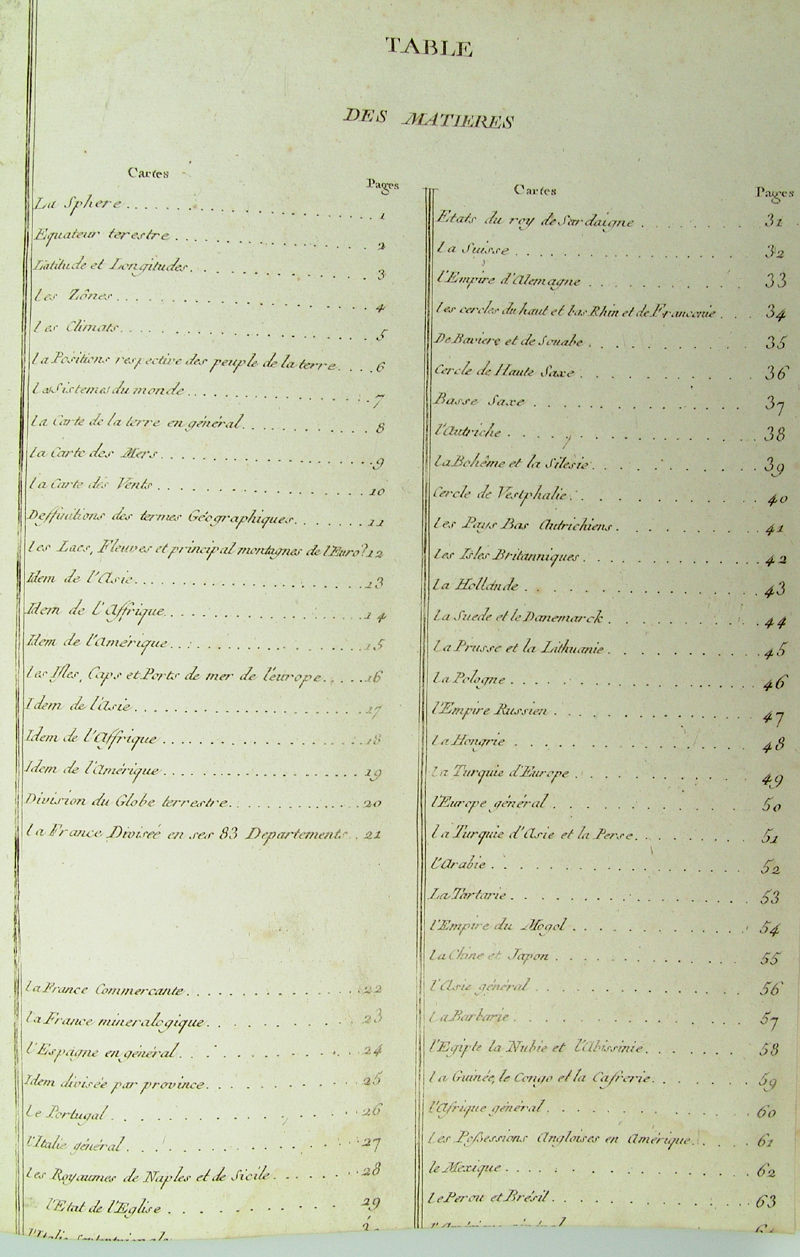 TABLE
DES MATIERES
Cartes
Pages
La Sphere 1
Equateur terestre 2
Latitude et Longitudes 3
Les Zônes 4
Les Climats 5
La Positions respective des peuple de la terre 6
Les Sistemes du monde 7
La Carte de la terre en général 8
La Carte des Mers 9
La Carte des Vents 10
Deffinitions des termes Géographiques 11
Les Lacs, Fleuves et principal montagnes de l'Euro? 12
Idem de l'Asie 13
Idem de l'Affrique 14
Idem de l'Amérique 15
Les Isles, Caps et Ports de mer de l'europe 16
Idem de l'Asie 17
Idem de l'Affrique 18
Idem de l'Amérique 19
Division du Globe terrestre 20
La France Divisée en ses 83 Departements 21
La France Commercante 22
La France mineralogique 23
l'Espagne en général 24
Idem divisée par province 25
Le Portugal 26
l'Italie général 27
Les Royaumes de Naples et de Sicile 28
l'Etat de l'Eglise 29
Cartes
Pages
Etats du roy de Sardaigne 31
La Suisse 32
l'Empire d'Alemagne 33
Les cercles du haut et bas Rhin et de Franconie 34
De Baviere et de Souabe 35
Cercle de Haute Saxe 36
Basse Saxe 37
l'Autriche 38
La Bohême et la Silesie 39
Cercle de Vestphalie 40
Les Pays Bas Autrichiens 41
Les Isles Britanniques 42
La Hollande 43
La Suede et le Danemarck 44
La Prusse et la Lithuanie 45
La Pologne 46
l'Empire Russien 47
La Hongrie 48
La Turquie d'Europe 49
l'Europe général 50
La Turquie d'Asie et la Perse 51
L'Arabie 52
La Tartarie 53
l'Empire du Mogol 54
La Chine et Japon 55
l'Asie général 56
La Barbarie 57
l'Egipte la Nubie et l'Abissinie 58
La Guinée, le Congo et la Cafrerie 59
l'Afrique général 60
Les Possessions Angloises en Amérique 61
le Mexique 62
Le Perou et Brésil 63